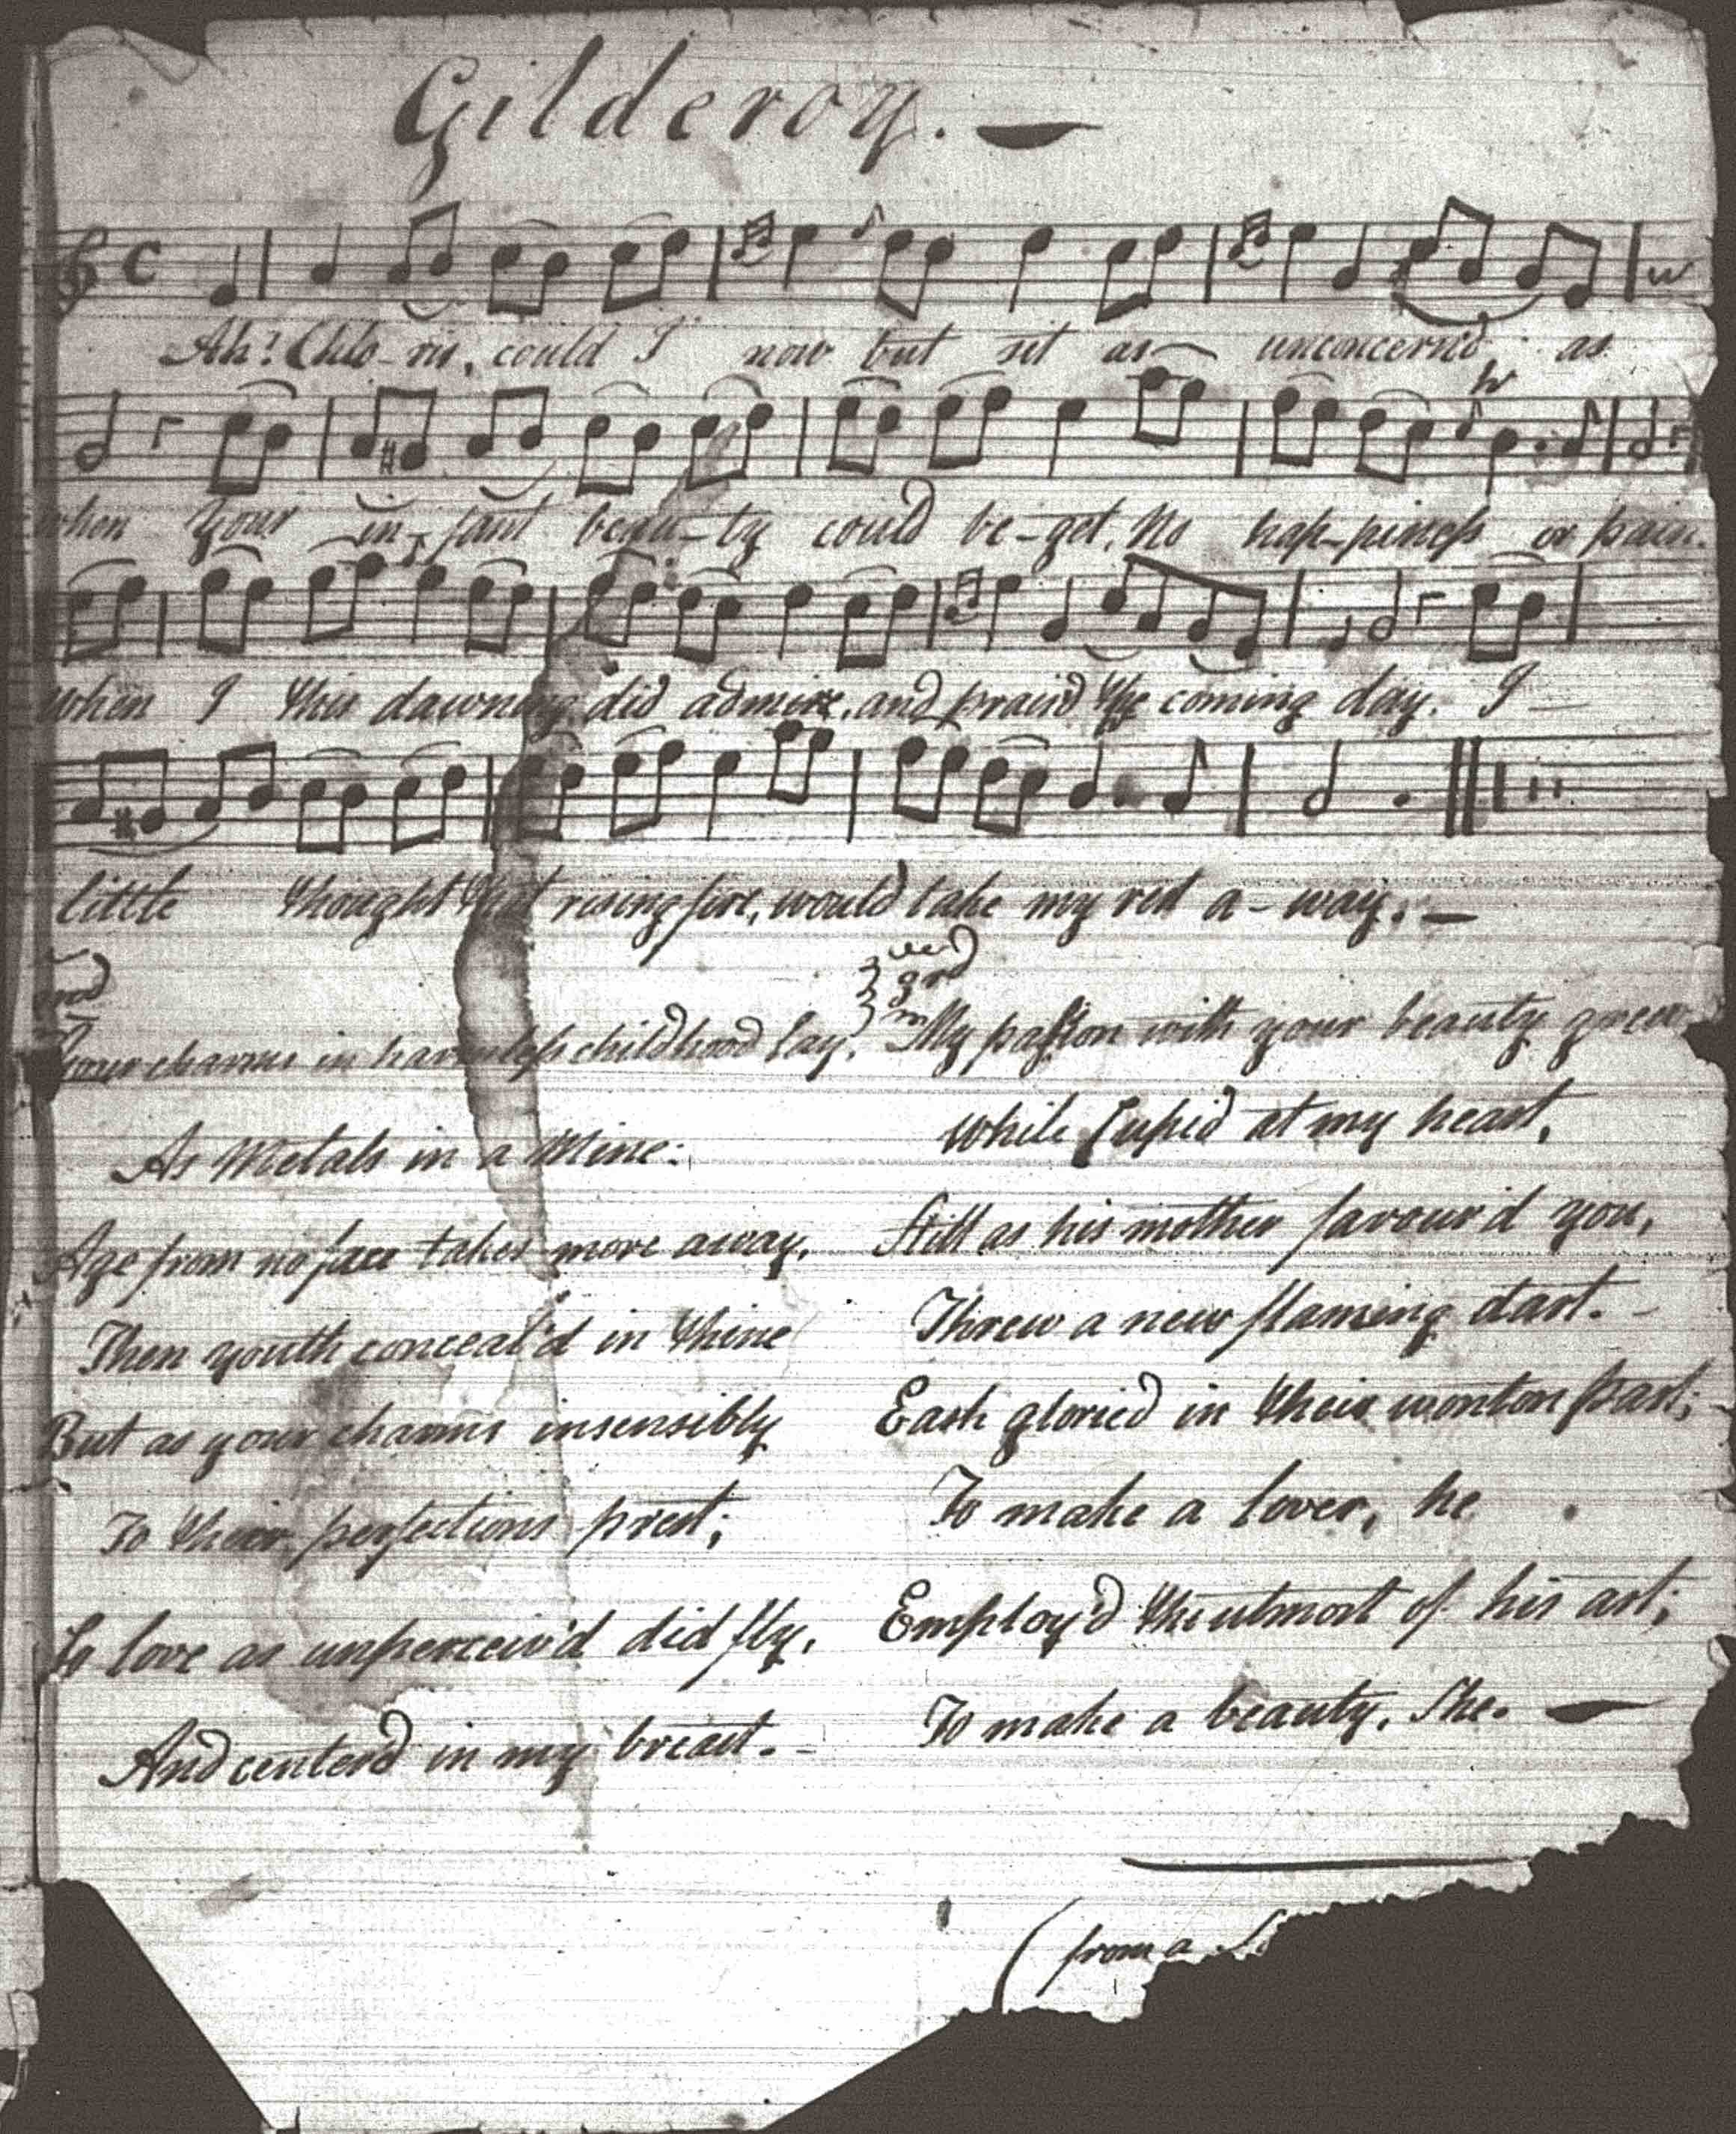 Gilderoy. —
Ah! Chlo-ris, could I now but sit as unconcern'd, as
when your in-fant beau-ty could be-get, No hap-piness or pain.
When I this dawning did admire, and prais'd the coming day. I —
little thought that rising fire, would take my rest a-way. —
Your charms in harmless childhood lay,
As Metals in a Mine:
Age from no face takes more away,
Then youth conceal'd in thine
But as your charms insensibly
To their perfections prest;
So love as unperceiv'd did fly,
And center'd in my breast. -
3rd
My passion with your beauty grew
While Cupid at my heart,
Still as his mother favour'd you,
Threw a new flaming dart. -
Each gloried in their wonton part;
To make a lover, he
Employ'd the utmost of his art;
To make a beauty, She. —
(from a